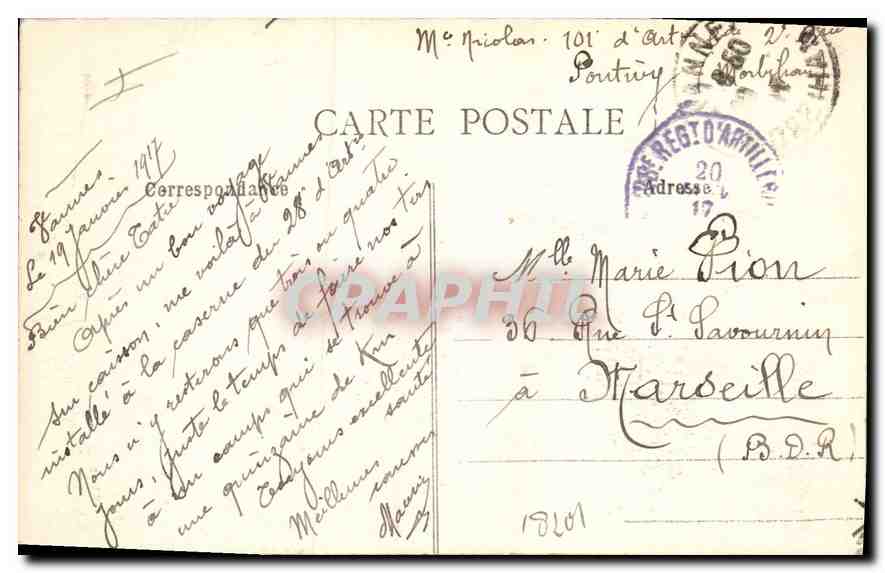 Mce Nicolas. 101e d'Art
Pontivy Morbihan
CARTE POSTALE
Correspondance
Adresse
28e REGt D'ARTILLERIE
20
17
Vannes
Le 19 Janvier 1917
Bien chère Tatie
Après un bon voyage
sur caisson, me voilà à Vannes
installé à la caserne du 28e d'Artie
Nous n'y resterons que trois ou quatre
jours, juste le temps de faire nos tirs
à un camps qui se trouve à
une quinzaine de Km
excellente
santé
Meilleures caresses
Maurice
Mlle Marie Pion
36 Rue St Savournin
à Marseille
(B.D.R)
18201
CPAPHIL